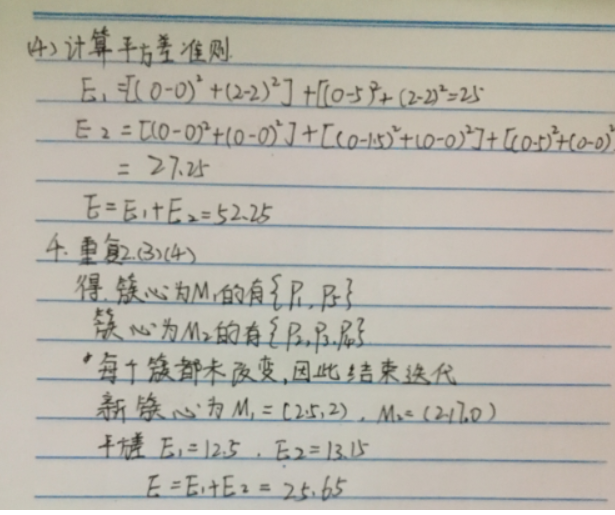 (4) 计算平方差准则.
E₁=[(0-0)²+(2-2)²]+[(0-5)²+(2-2)²=25
E₂=[(0-0)²+(0-0)²]+[(0-1.5)²+(0-0)²]+[(0-5)²+(0-0)²
= 27.25
E=E₁+E₂=52.25
4. 重复2.(3)(4)
得 簇心为M₁的有{P₁, P₅}
簇心为M₂的有{P₂,P₃.P₄}
每个簇都未改变,因此结束迭代
新簇心为M₁=(2.5,2), M₂=(2.17,0)
平方差 E₁=12.5 . E₂=13.15
E=E₁+E₂=25.65